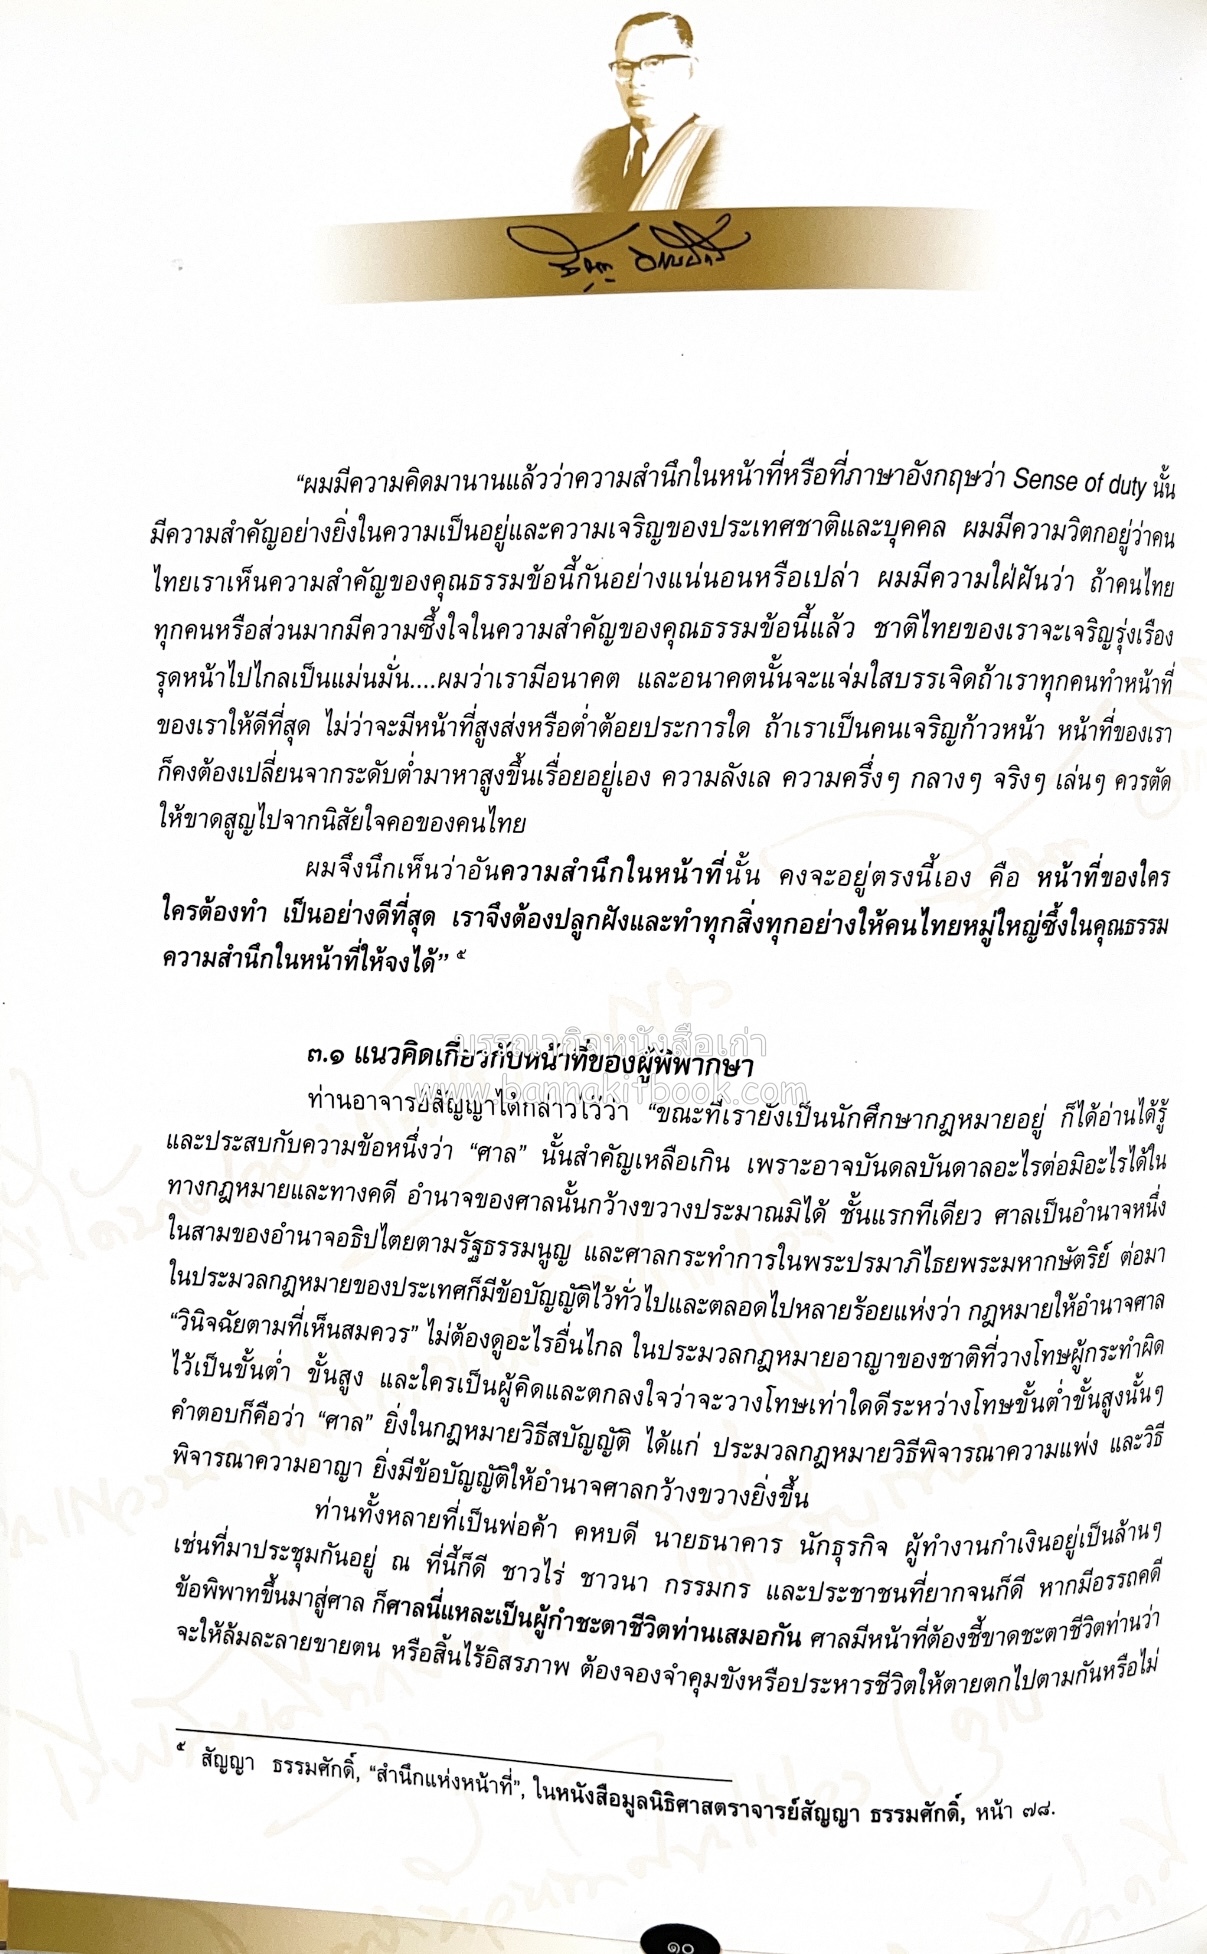 “ผมมีความคิดมานานแล้วว่าความสำนึกในหน้าที่หรือที่ภาษาอังกฤษว่า Sense of duty นั้น
มีความสำคัญอย่างยิ่งในความเป็นอยู่และความเจริญของประเทศชาติและบุคคล ผมมีความวิตกอยู่ว่าคน
ไทยเราเห็นความสำคัญของคุณธรรมข้อนี้กันอย่างแน่นอนหรือเปล่า ผมมีความใฝ่ฝันว่า ถ้าคนไทย
ทุกคนหรือส่วนมากมีความซึ้งใจในความสำคัญของคุณธรรมข้อนี้แล้ว ชาติไทยของเราจะเจริญรุ่งเรือง
รุดหน้าไปไกลเป็นแม่นมั่น....ผมว่าเรามีอนาคต และอนาคตนั้นจะแจ่มใสบรรเจิดถ้าเราทุกคนทำหน้าที่
ของเราให้ดีที่สุด ไม่ว่าจะมีหน้าที่สูงส่งหรือต่ำต้อยประการใด ถ้าเราเป็นคนเจริญก้าวหน้า หน้าที่ของเรา
ก็คงต้องเปลี่ยนจากระดับต่ำมาหาสูงขึ้นเรื่อยอยู่เอง ความลังเล ความครึ่งๆ กลางๆ จริงๆ เล่นๆ ควรตัด
ให้ขาดสูญไปจากนิสัยใจคอของคนไทย
ผมจึงนึกเห็นว่าอันความสำนึกในหน้าที่นั้น คงจะอยู่ตรงนี้เอง คือ หน้าที่ของใคร
ใครต้องทำ เป็นอย่างดีที่สุด เราจึงต้องปลูกฝังและทำทุกสิ่งทุกอย่างให้คนไทยหมู่ใหญ่ซึ้งในคุณธรรม
ความสำนึกในหน้าที่ให้จงได้” ๕
บรรณากิจหนังสือเก่า
๓.๑ แนวคิดเกี่ยวกับหน้าที่ของผู้พิพากษา
www.bannakitbook.com
ท่านอาจารย์สัญญาได้กล่าวไว้ว่า “ขณะที่เรายังเป็นนักศึกษากฎหมายอยู่ ก็ได้อ่านได้รู้
และประสบกับความข้อหนึ่งว่า “ศาล” นั้นสำคัญเหลือเกิน เพราะอาจบันดลบันดาลอะไรต่อมิอะไรได้ใน
ทางกฎหมายและทางคดี อำนาจของศาลนั้นกว้างขวางประมาณมิได้ ชั้นแรกทีเดียว ศาลเป็นอำนาจหนึ่ง
ในสามของอำนาจอธิปไตยตามรัฐธรรมนูญ และศาลกระทำการในพระปรมาภิไธยพระมหากษัตริย์ ต่อมา
ในประมวลกฎหมายของประเทศก็มีข้อบัญญัติไว้ทั่วไปและตลอดไปหลายร้อยแห่งว่า กฎหมายให้อำนาจศาล
“วินิจฉัยตามที่เห็นสมควร” ไม่ต้องดูอะไรอื่นไกล ในประมวลกฎหมายอาญาของชาติที่วางโทษผู้กระทำผิด
ไว้เป็นขั้นต่ำ ขั้นสูง และใครเป็นผู้คิดและตกลงใจว่าจะวางโทษเท่าใดดีระหว่างโทษขั้นต่ำขั้นสูงนั้นๆ
คำตอบก็คือว่า “ศาล” ยิ่งในกฎหมายวิธีสบัญญัติ ได้แก่ ประมวลกฎหมายวิธีพิจารณาความแพ่ง และวิธี
พิจารณาความอาญา ยิ่งมีข้อบัญญัติให้อำนาจศาลกว้างขวางยิ่งขึ้น
ท่านทั้งหลายที่เป็นพ่อค้า คหบดี นายธนาคาร นักธุรกิจ ผู้ทำงานกำเงินอยู่เป็นล้านๆ
เช่นที่มาประชุมกันอยู่ ณ ที่นี้ก็ดี ชาวไร่ ชาวนา กรรมกร และประชาชนที่ยากจนก็ดี หากมีอรรถคดี
ข้อพิพาทขึ้นมาสู่ศาล ก็ศาลนี่แหละเป็นผู้กำชะตาชีวิตท่านเสมอกัน ศาลมีหน้าที่ต้องชี้ขาดชะตาชีวิตท่านว่า
จะให้ล้มละลายขายตน หรือสิ้นไร้อิสรภาพ ต้องจองจำคุมขังหรือประหารชีวิตให้ตายตกไปตามกันหรือไม่
๕ สัญญา ธรรมศักดิ์, “สำนึกแห่งหน้าที่”, ในหนังสือมูลนิธิศาสตราจารย์สัญญา ธรรมศักดิ์, หน้า ๗๘.
๑๐